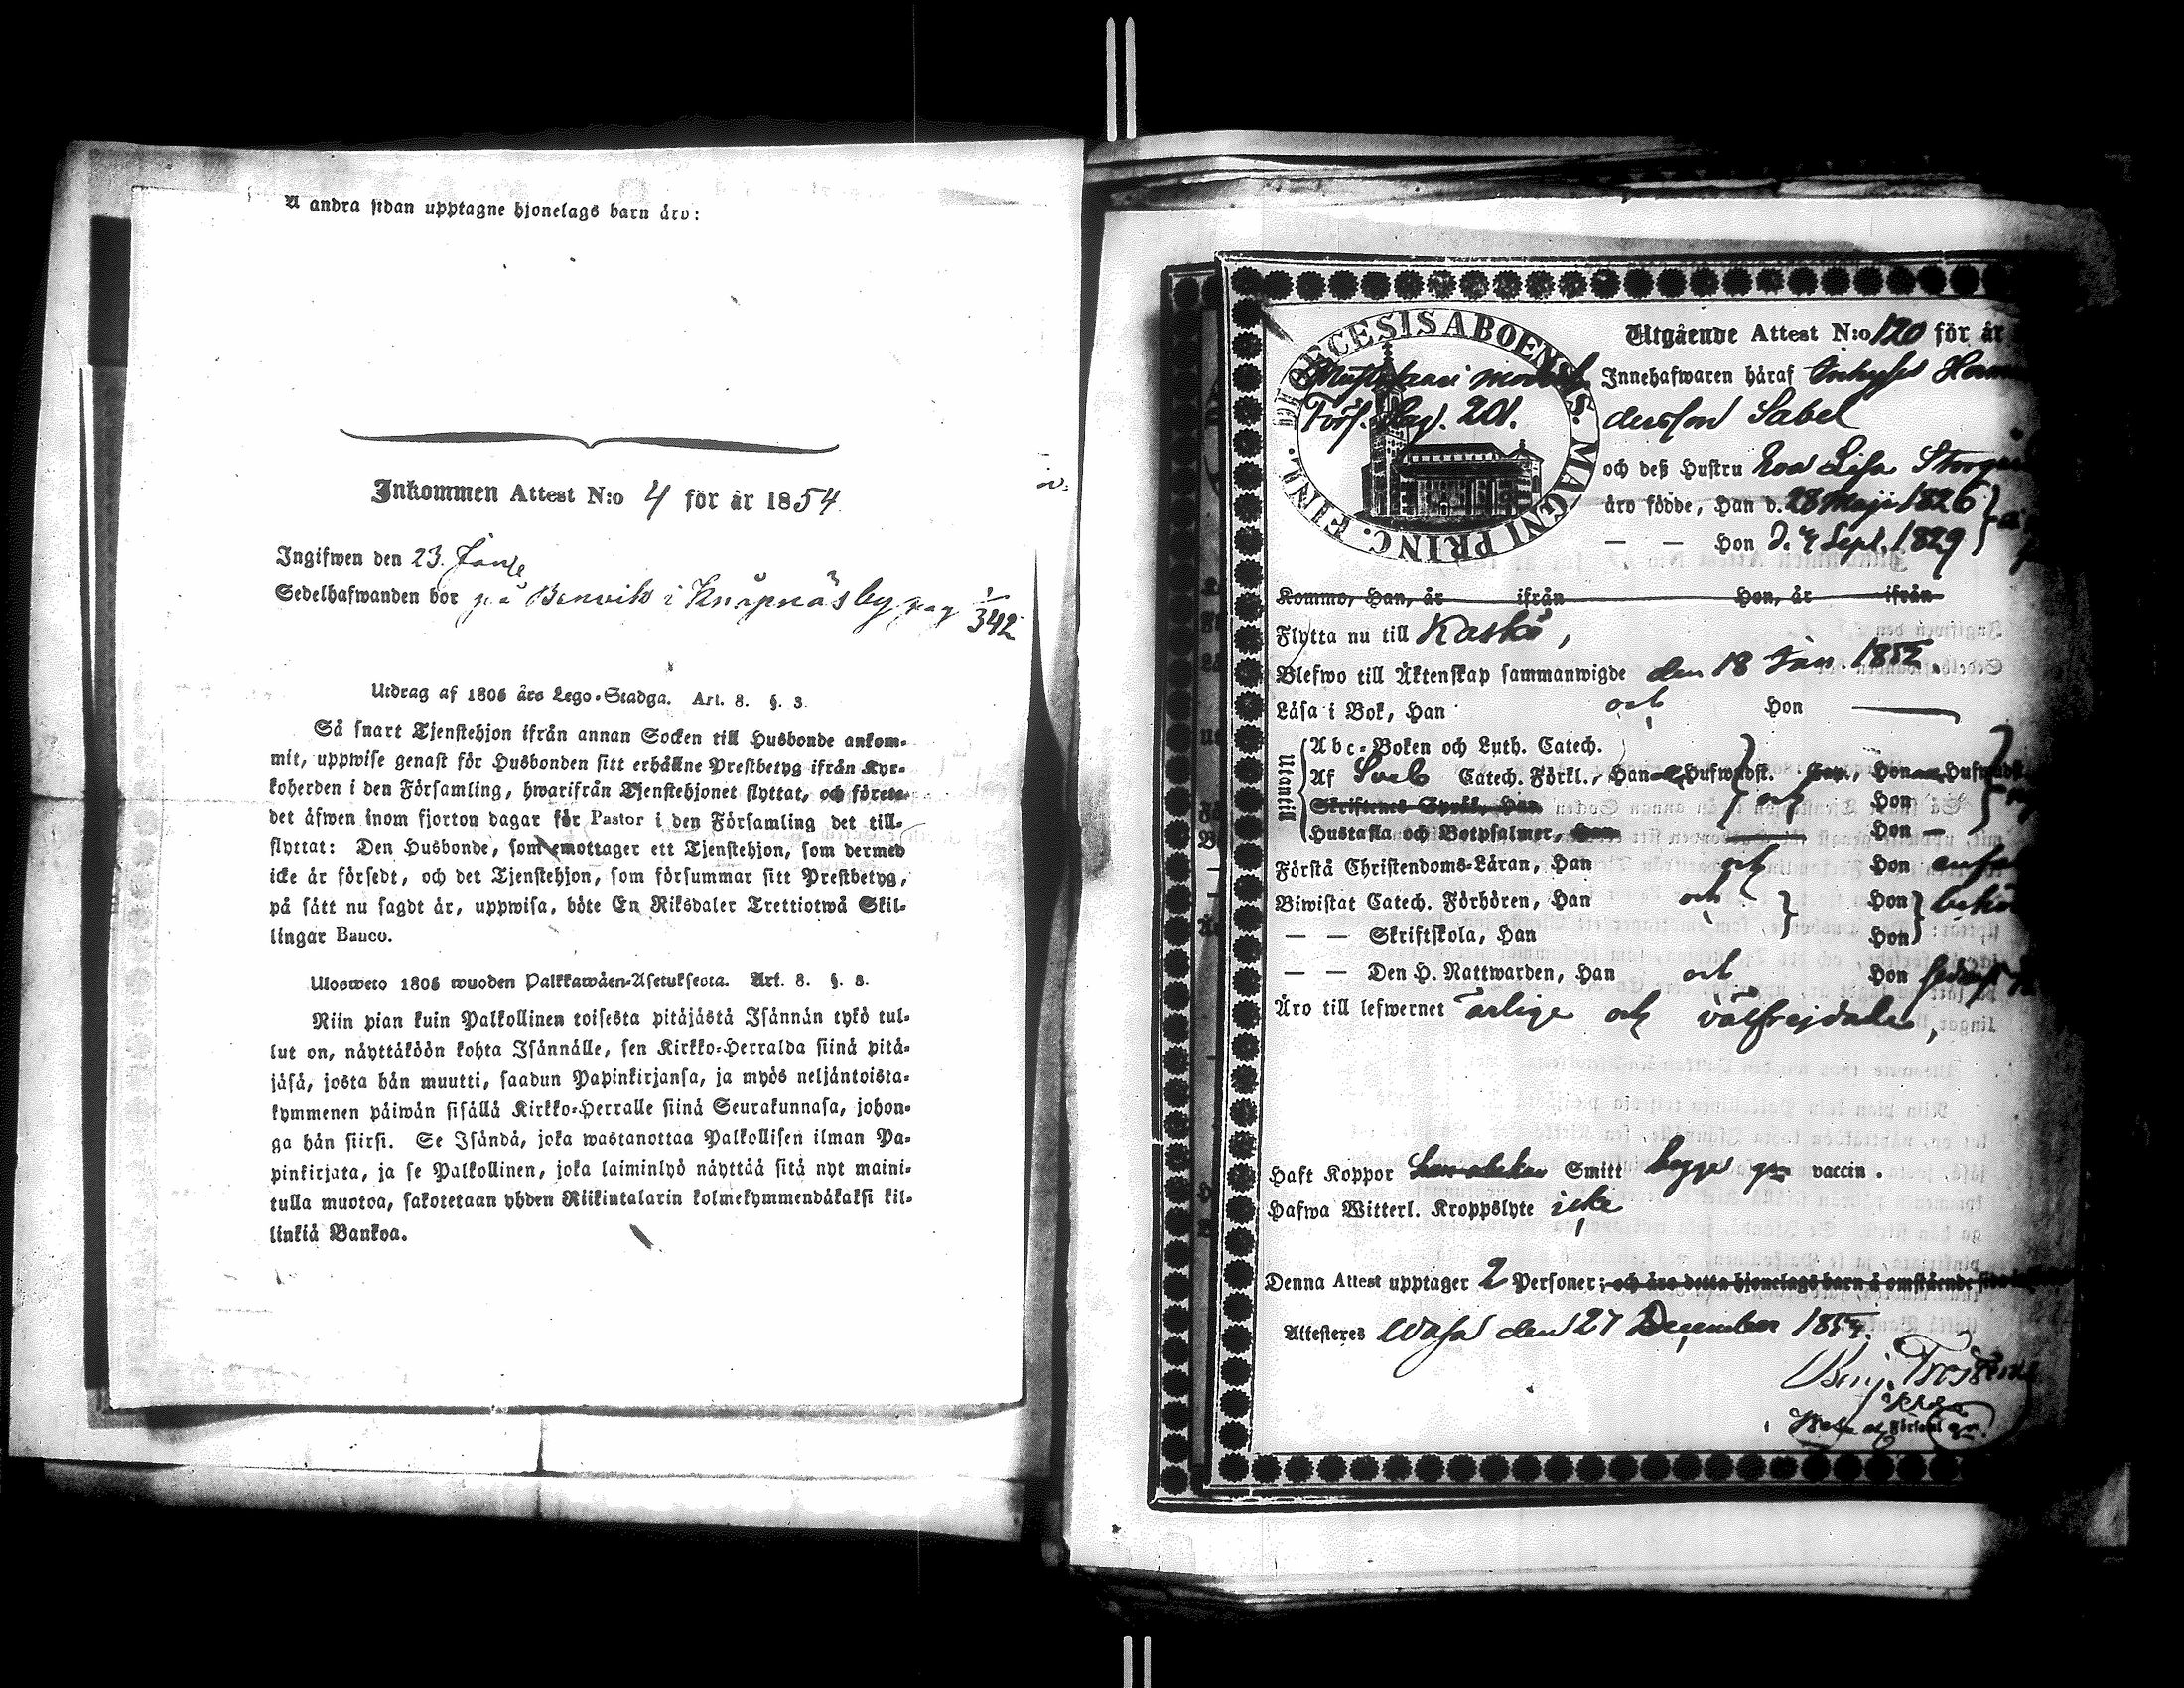 Å andra sidan upptagne hjonelags barn äro:
Inkommen Attest N:o 4 för år 1854
Ingifwen den 23.
Sedelhafwanden bor på Benvik i Knåpnäsby pag 342
Utdrag af 1805 års Lego-Stadga. Art. 8. §. 3.
Så snart Tjenstehjon ifrån annan Socken till Husbonde ankom-
mit, uppwise genast för Husbonden sitt erhållne Prestbetyg ifrån Kyr-
koherden i den Församling, hwarifrån Tjenstehjonet flyttat, och förete
det äfwen inom fjorton dagar för Pastor i den Församling det till-
flyttat: Den Husbonde, som emottager ett Tjenstehjon, som dermed
icke är försedt, och det Tjenstehjon, som försummar sitt Prestbetyg,
på sått nu sagdt är, uppwisa, böte En Riksdaler Trettiotwå Skil-
lingar Banco.
Ulosweto 1805 wuoden Palkkawäen-Asetuksesta. Art. 8. §. 3.
Niin pian kuin Palkollinen toisesta pitäjästä Isännän tykö tul-
lut on, näyttäköön kohta Isännälle, sen Kirkko-Herralda siinä pitä-
jäsä, josta hän muutti, saadun Papinkirjansa, ja myös neljäntoista-
kymmenen päiwän sisällä Kirkko-Herralle siinä Seurakunnasa, johon-
ga hän siirsi. Se Isändä, joka wastanottaa Palkollisen ilman Pa-
pinkirjata, ja se Palkollinen, joka laiminlyö näyttää sitä nyt maini-
tulla muotoa, sakotetaan yhden Riikintalarin kolmekymmendäkaksi kil-
linkiä Bankoa.
DIOECESIS ABOENSIS. MAGNI PRINC. FINL.
Förs. Pag. 201.
Utgående Attest N:o 120 för år
Innehafwaren häraf
dersson Sabel
och deß Hustru Eva Lisa
äro födde, Han d. 28 Maji 1826
— — Hon d. 4 Sept. 1829
Kommo, Han, år ifrån Hon, år ifrån
Flytta nu till Kaskö,
Blefwo till Äktenskap sammanwigde den 18 Jan. 1852.
Läsa i Bok, Han och Hon —
Utantill
Abc-Boken och Luth. Catech.
Af Sveb Catech. Förkl., Han Hufwudst. Hon Hufwudst.
Skriftenes Språk, Han och Hon
Hustafla och Botpsalmer, Han Hon —
Förstå Christendoms-Läran, Han och Hon
Biwistat Catech. Förhören, Han och Hon
— — Skriftskola, Han Hon
— — Den H. Nattwarden, Han och Hon
Äro till lefwernet ärlige och välfrejdade,
Haft Koppor Smitt begge gm vaccin.
Hafwa Witterl. Kroppslyte icke
Denna Attest upptager 2 Personer; och äro detta hjonelags barn å omstående
Attesteres Wasa den 27 December
Benj.